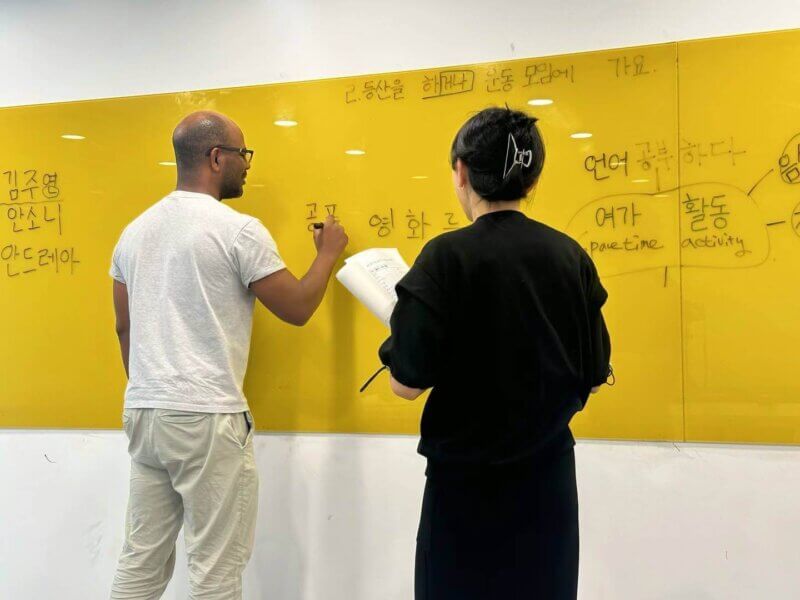 2. 등산을 하거나 운동 모임에 가요.
김주영
안소니
안드레아
공포 영화
언어 공부하다
여가 활동
pavetime activity